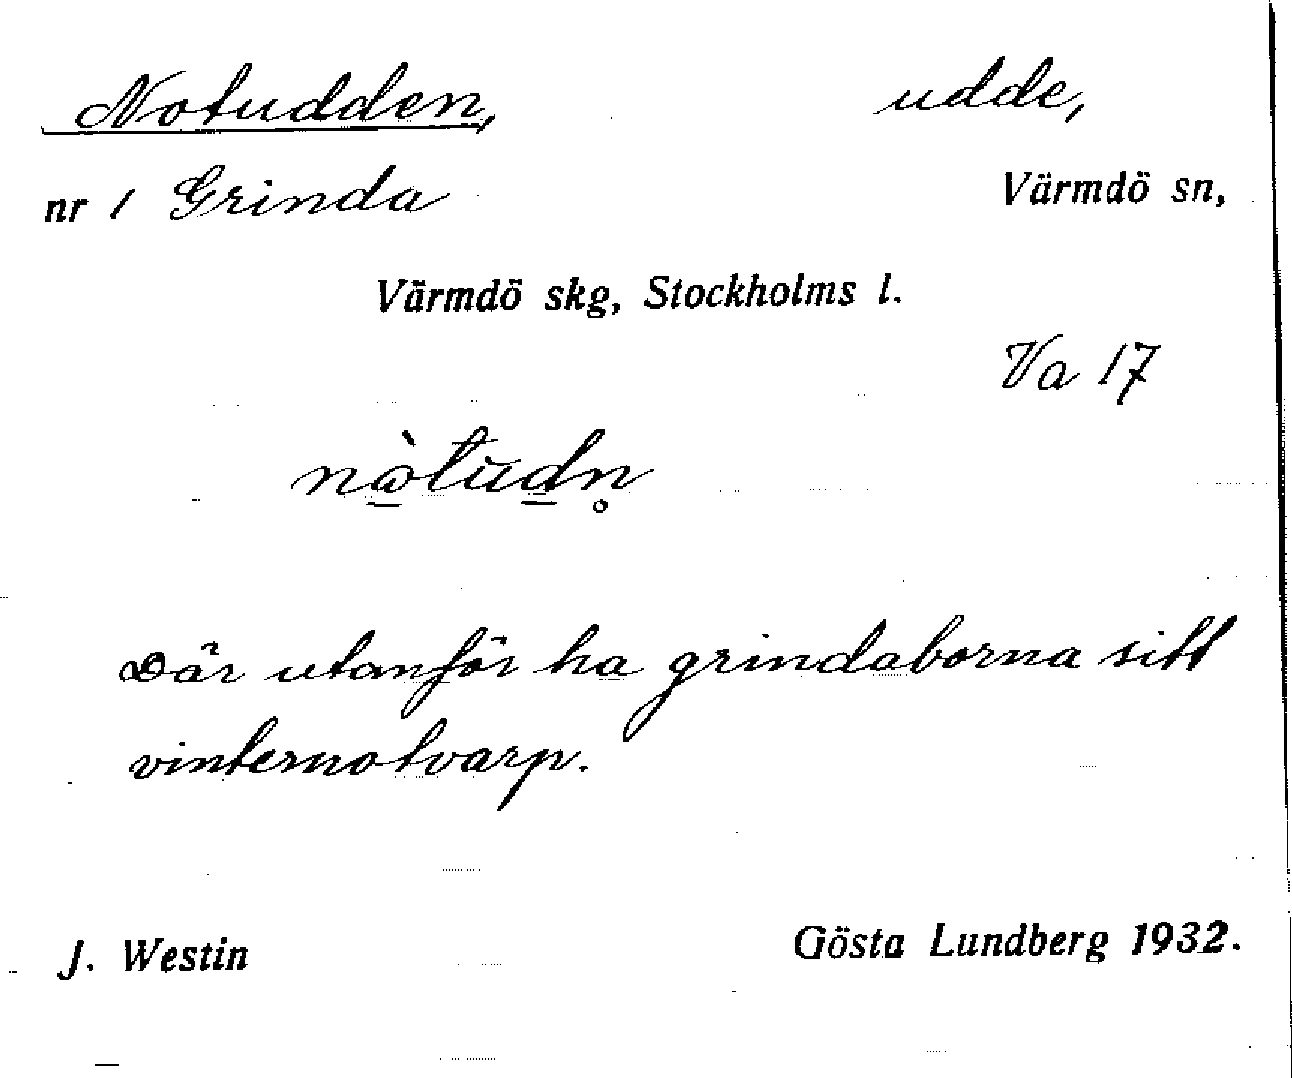 Notudden, udde,
nr 1 Grinda Värmdö sn,
Värmdö skg, Stockholms l.
Va 17
Där utanför ha grindaborna sitt
vinternotvarp.
J. Westin Gösta Lundberg 1932.